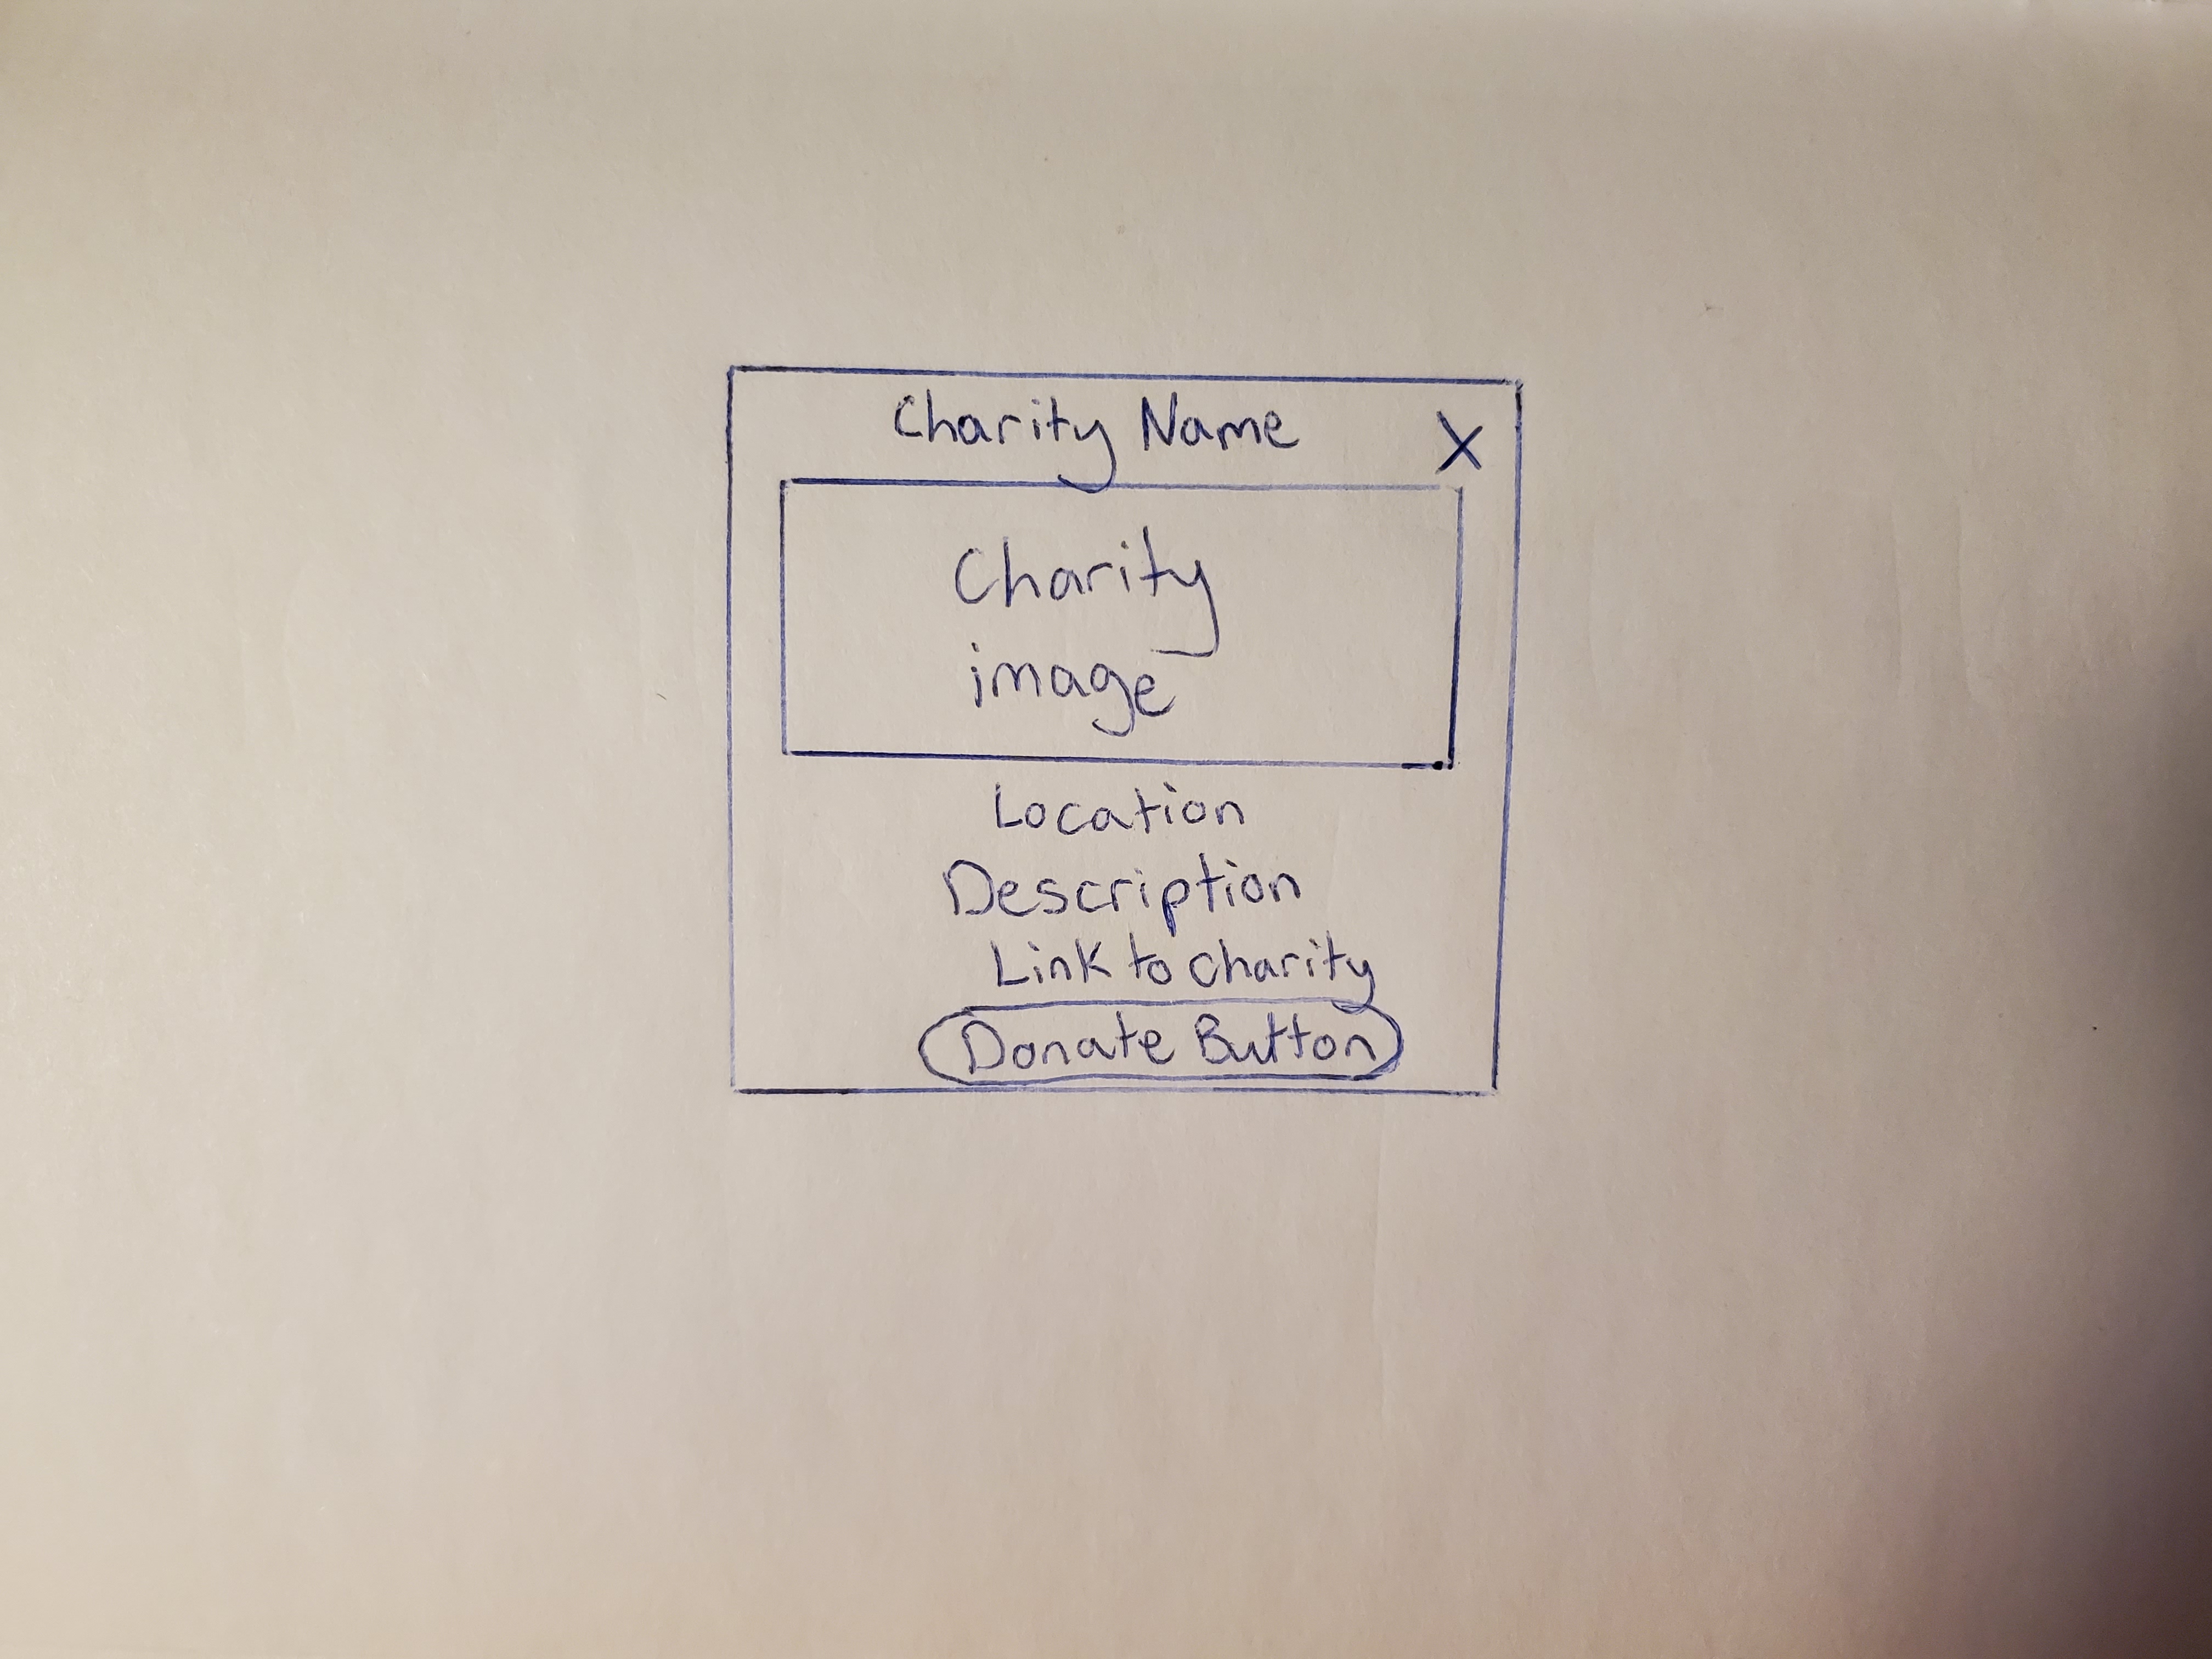 Charity Name X
Charity
image
Location
Description
Link to charity
Donate Button